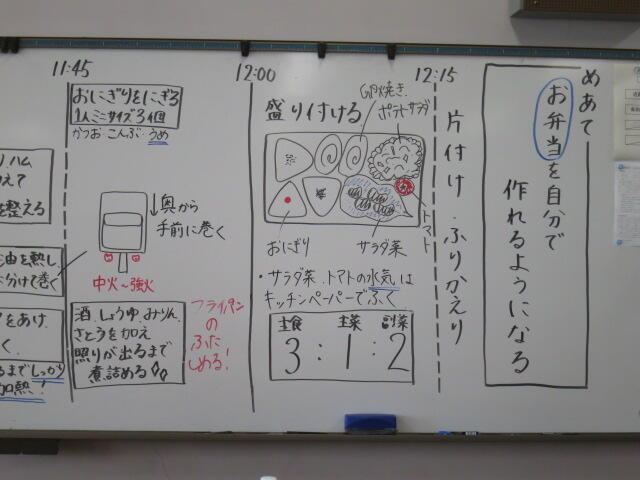 めあて
お弁当を自分で
作れるようになる
12:15
片付け・ふりかえり
12:00
盛り付ける
GP焼き
ポテトサラダ
トマト
おにぎり
サラダ菜
・サラダ菜、トマトの水気は
キッチンペーパーでふく
主食 主菜 副菜
3:1:2
11:45
おにぎりをにぎる
1人ミニサイズ3個
かつお・こんぶ・うめ
↓奥から
手前に巻く
中火〜強火
酒、しょうゆ、みりん、
さとうを加え
照りが出るまで
煮詰める
フライパン
の
ふた
しめる!
ハム
えて
を整える
油を熱し、
分けて巻く
をあけ
く。
るまでしっかり
加熱!